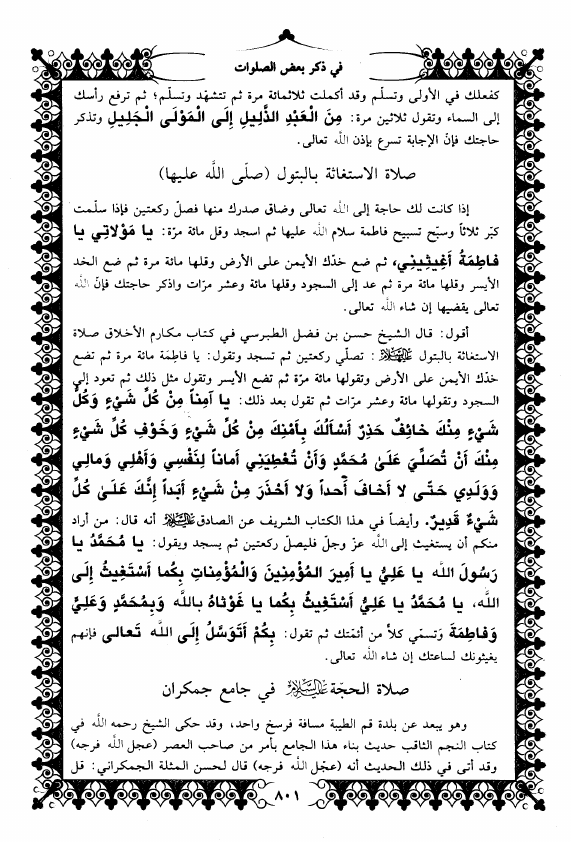 في ذكر بعض الصلوات
كفعلك في الأولى وتسلّم وقد أكملت ثلاثمائة مرة ثم تتشهّد وتسلّم؛ ثم ترفع رأسك
إلى السماء وتقول ثلاثين مرة: مِنَ الْعَبْدِ الذَّلِيلِ إِلَى الْمَوْلَى الْجَلِيلِ وتذكر
حاجتك فإنّ الإجابة تسرع بإذن الله تعالى.
صلاة الاستغاثة بالبتول (صلّى اللّه عليها)
إذا كانت لك حاجة إلى الله تعالى وضاق صدرك منها فصلّ ركعتين فإذا سلّمت
كبّر ثلاثاً وسبّح تسبيح فاطمة سلام الله عليها ثم اسجد وقل مائة مرّة: يا مَوْلاتِي يا
فاطِمَةُ أَغِيثِينِي، ثم ضع خدّك الأيمن على الأرض وقلها مائة مرة ثم ضع الخد
الأيسر وقلها مائة مرة ثم عد إلى السجود وقلها مائة وعشر مرّات واذكر حاجتك فإنّ الله
تعالى يقضيها إن شاء الله تعالى.
أقول: قال الشيخ حسن بن فضل الطبرسي في كتاب مكارم الأخلاق صلاة
الاستغاثة بالبتول عليها السلام: تصلّي ركعتين ثم تسجد وتقول: يا فاطِمَة مائة مرة ثم تضع
خدّك الأيمن على الأرض وتقولها مائة مرّة ثم تضع الأيسر وتقول مثل ذلك ثم تعود إلى
السجود وتقولها مائة وعشر مرّات ثم تقول بعد ذلك: يا آمِناً مِنْ كُلِّ شَيْءٍ وَكُلُّ
شَيْءٍ مِنْكَ خائِفٌ حَذِرٌ أَسْأَلُكَ بِأَمْنِكَ مِنْ كُلِّ شَيْءٍ وَخَوْفِ كُلِّ شَيْءٍ
مِنْكَ أَنْ تُصَلِّيَ عَلَىٰ مُحَمَّدٍ وَآلِ مُحَمَّدٍ وَأَنْ تُعْطِيَنِي أَماناً لِنَفْسِي وَأَهْلِي وَمالِي
وَوَلَدِي حَتّى لا أَخافَ أَحداً وَلا أَحْذَرَ مِنْ شَيْءٍ أَبَداً إِنَّكَ عَلَىٰ كُلِّ
شَيْءٌ قَدِيرٌ. وأيضاً في هذا الكتاب الشريف عن الصادق عليه السلام أنه قال: من أراد
منكم أن يستغيث إلى الله عزّ وجلّ فليصلّ ركعتين ثم يسجد ويقول: يا مُحَمَّدُ يا
رَسُولَ الله يا عَلِيُّ يا أَمِيرَ المُؤْمِنِينَ وَالْمُؤْمِناتِ بِكُما أَسْتَغِيثُ إِلَى
اللَّه، يا مُحَمَّدُ يا عَلِيُّ أَسْتَغِيثُ بِكُما يا غَوْثاهُ بِالله وَبِمُحَمَّدٍ وَعَلِيٍّ
وَفاطِمَةَ وَتسمّي كلاً من أئمّتك ثم تقول: بِكُمْ أَتَوَسَّلُ إِلَى اللَّه تَعالى فإنهم
يغيثونك لساعتك إن شاء الله تعالى.
صلاة الحجّة عليه السلام في جامع جمكران
وهو يبعد عن بلدة قم الطيبة مسافة فرسخ واحد، وقد حكى الشيخ رحمه الله في
كتاب النجم الثاقب حديث بناء هذا الجامع بأمر من صاحب العصر (عجل الله فرجه)
وقد أتى في ذلك الحديث أنه (عجّل الله فرجه) قال لحسن المثلة الجمكراني: قل
٨٠١